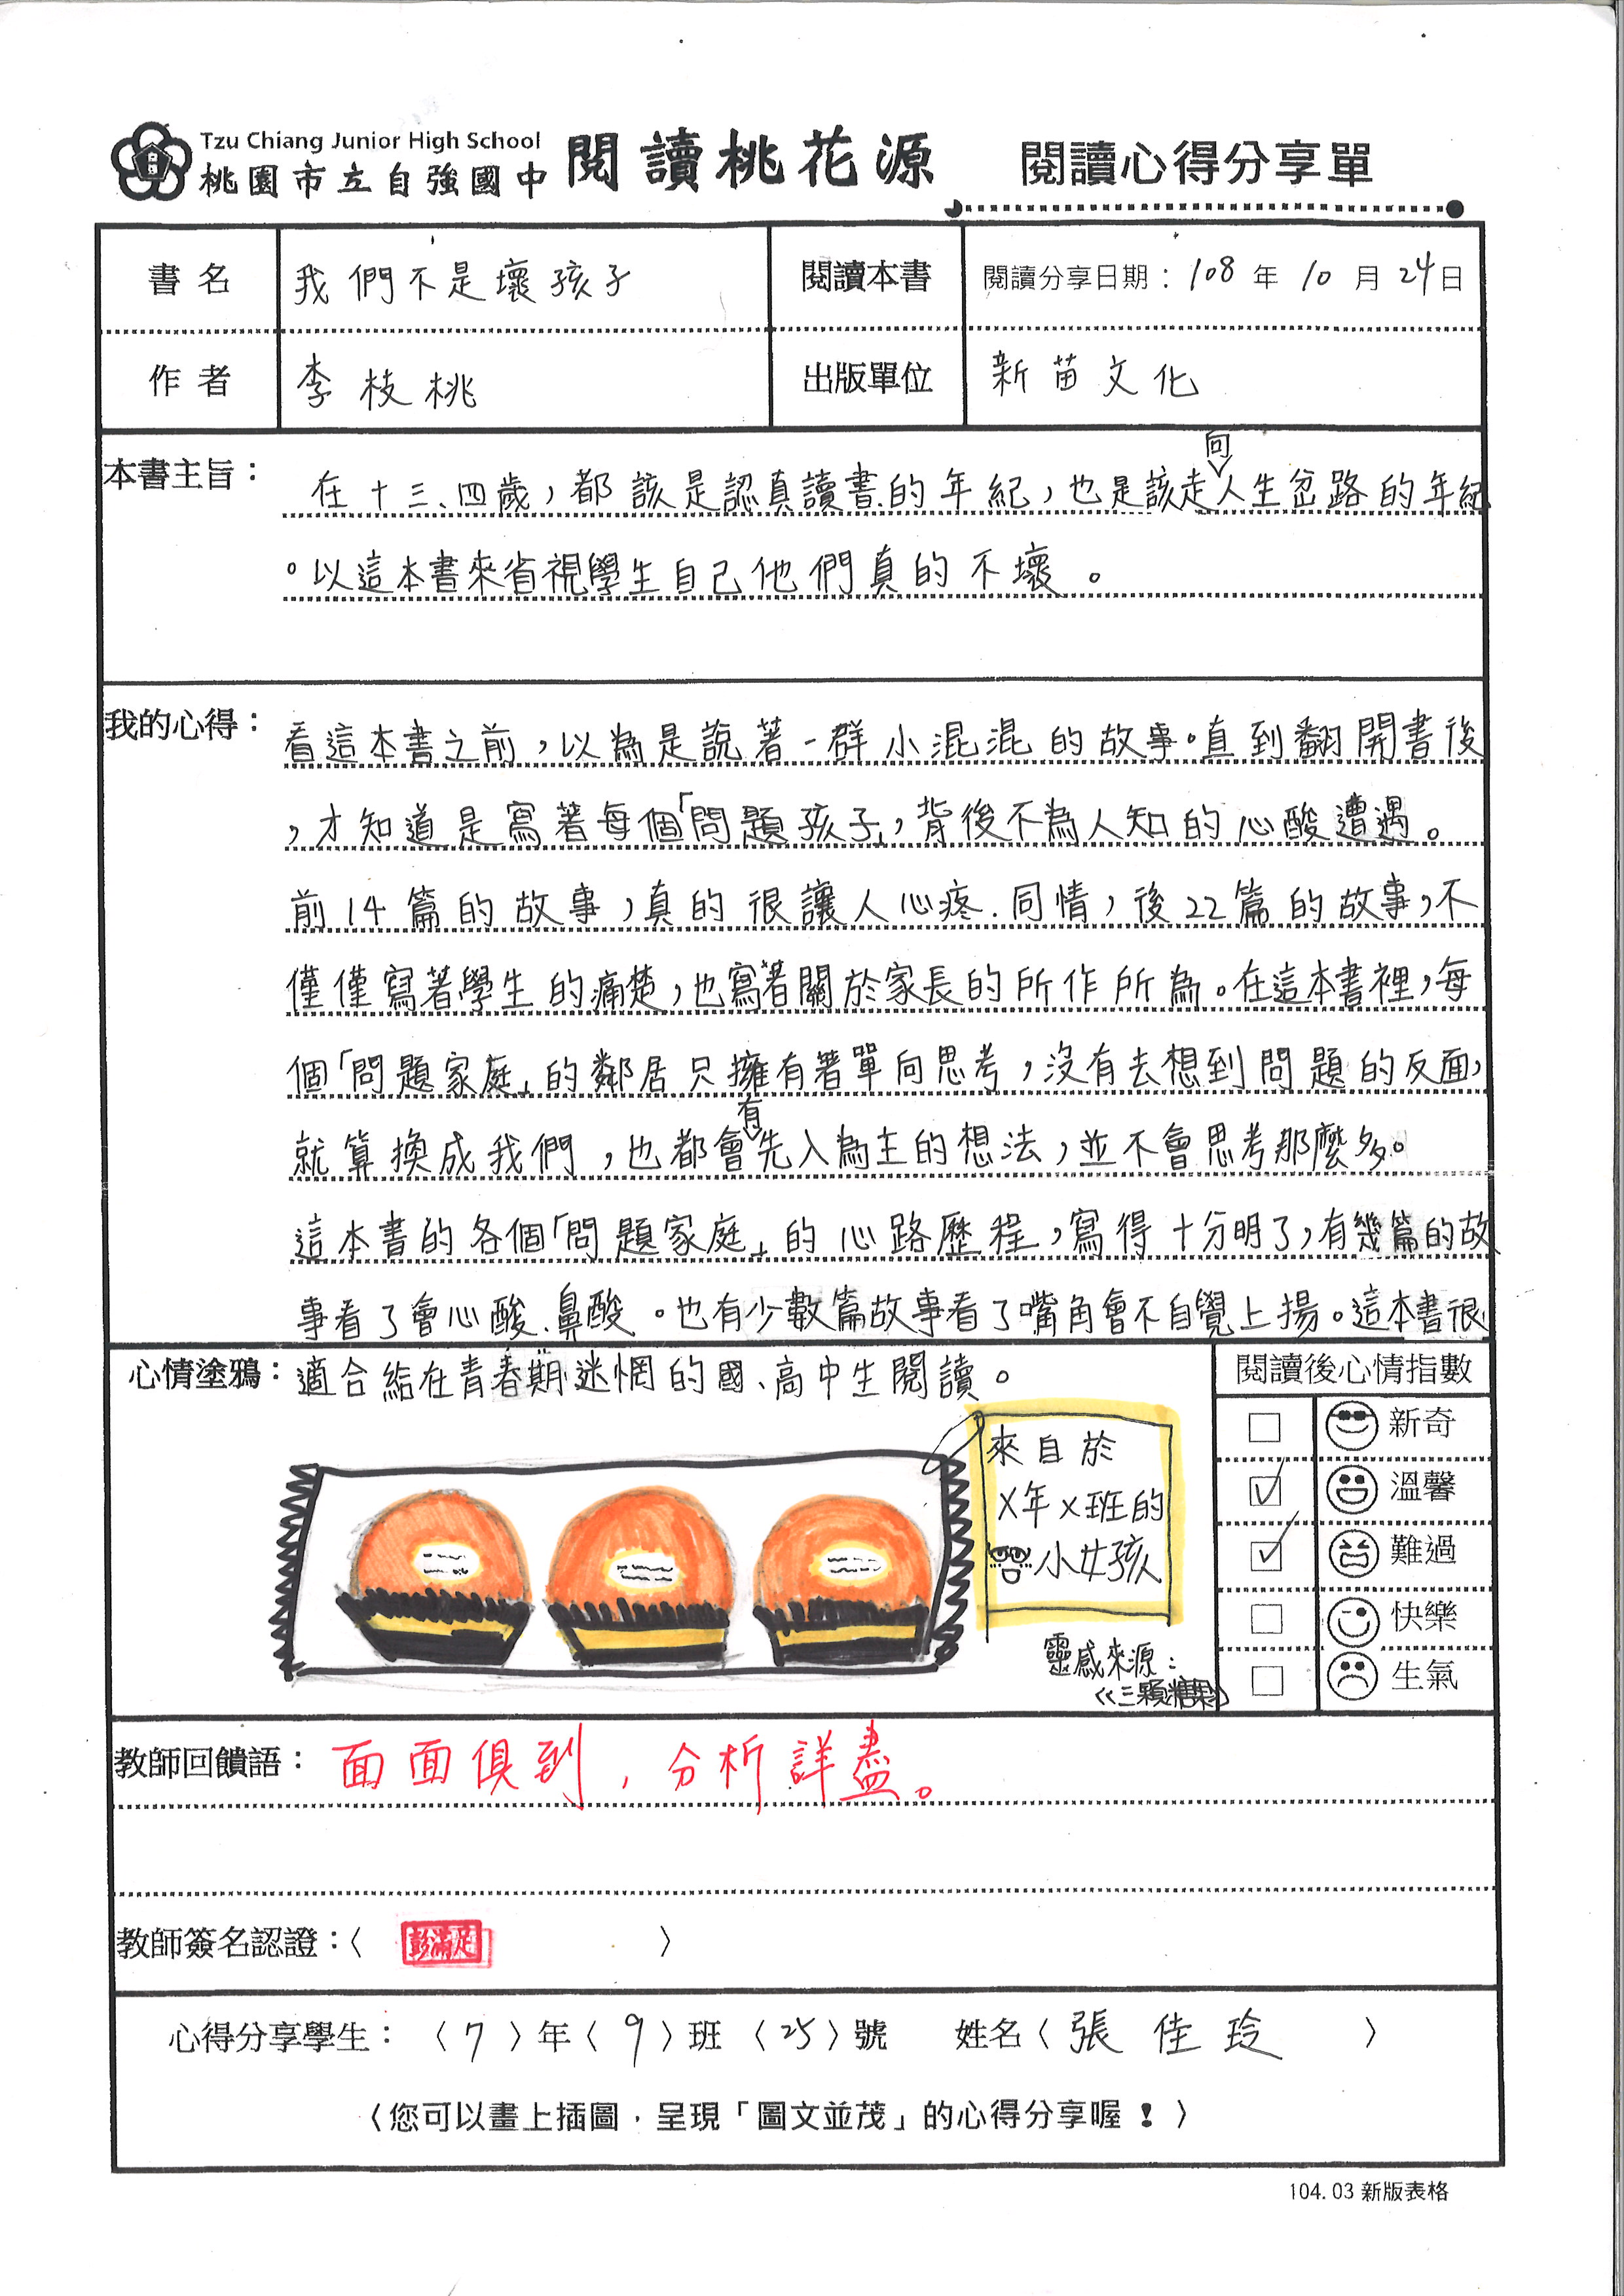 Tzu Chiang Junior High School
桃園市立自強國中 閱讀桃花源 閱讀心得分享單
書名 我們不是壞孩子 閱讀本書 閱讀分享日期：108年10月24日
作者 李枝桃 出版單位 新苗文化
本書主旨：在十三、四歲，都該是認真讀書的年紀，也是該走向人生岔路的年紀
。以這本書來省視學生自己他們真的不壞。
我的心得：看這本書之前，以為是說著一群小混混的故事。直到翻開書後
，才知道是寫著每個「問題孩子」，背後不為人知的心酸遭遇。
前14篇的故事，真的很讓人心疼、同情，後22篇的故事，不
僅僅寫著學生的痛楚，也寫著關於家長的所作所為。在這本書裡，每
個「問題家庭」的鄰居只擁有著單向思考，沒有去想到問題的反面，
就算換成我們，也都會有先入為主的想法，並不會思考那麼多。
這本書的各個「問題家庭」的心路歷程，寫得十分明了，有幾篇的故
事看了會心酸、鼻酸。也有少數篇故事看了嘴角會不自覺上揚。這本書很
心情塗鴉：適合給在青春期迷惘的國、高中生閱讀。
來自於
X年X班的
小女孩
靈感來源：
《三顆糖果》
閱讀後心情指數
新奇
溫馨
難過
快樂
生氣
教師回饋語：面面俱到，分析詳盡。
教師簽名認證：〈 彭滿足 〉
心得分享學生：〈7〉年〈9〉班〈25〉號 姓名〈張佳玲〉
〈您可以畫上插圖，呈現「圖文並茂」的心得分享喔！〉
104.03新版表格